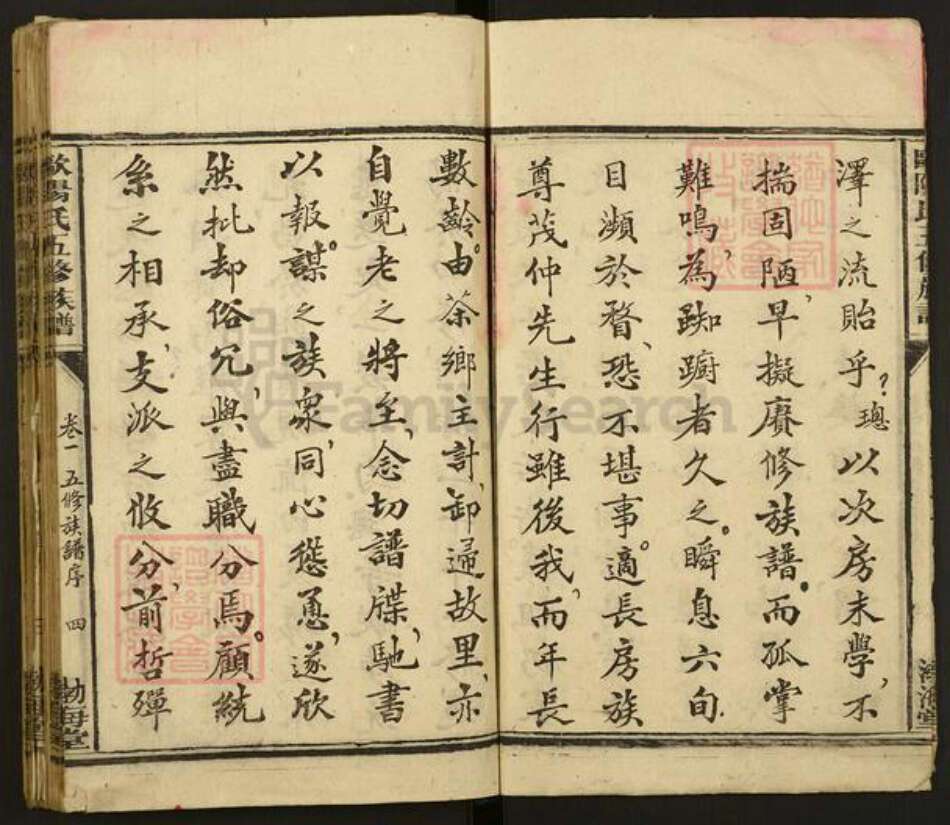 澤之流貽乎?璁以次房末學,不
揣固陋,早擬賡修族譜。而孤掌
難鳴,為踟躕者久之。瞬息六旬
目瀕於瞀,恐不堪事。適長房族
尊茂仲先生行雖後我,而年長
數齡。由茶鄉主計,卸歸故里,亦
自覺老之將至,念切譜牒,馳書
以報謀。之族衆,同心慫恿,遂欣
然批却俗冗,與盡職分焉。顧統
系之相承,支派之攸分,前哲殫
歐陽氏五修族譜
卷一 五修族譜序 四
勃海堂
FamilySearch